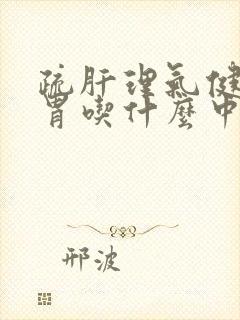 疏肝理气健
胃喫什麼中
邢波